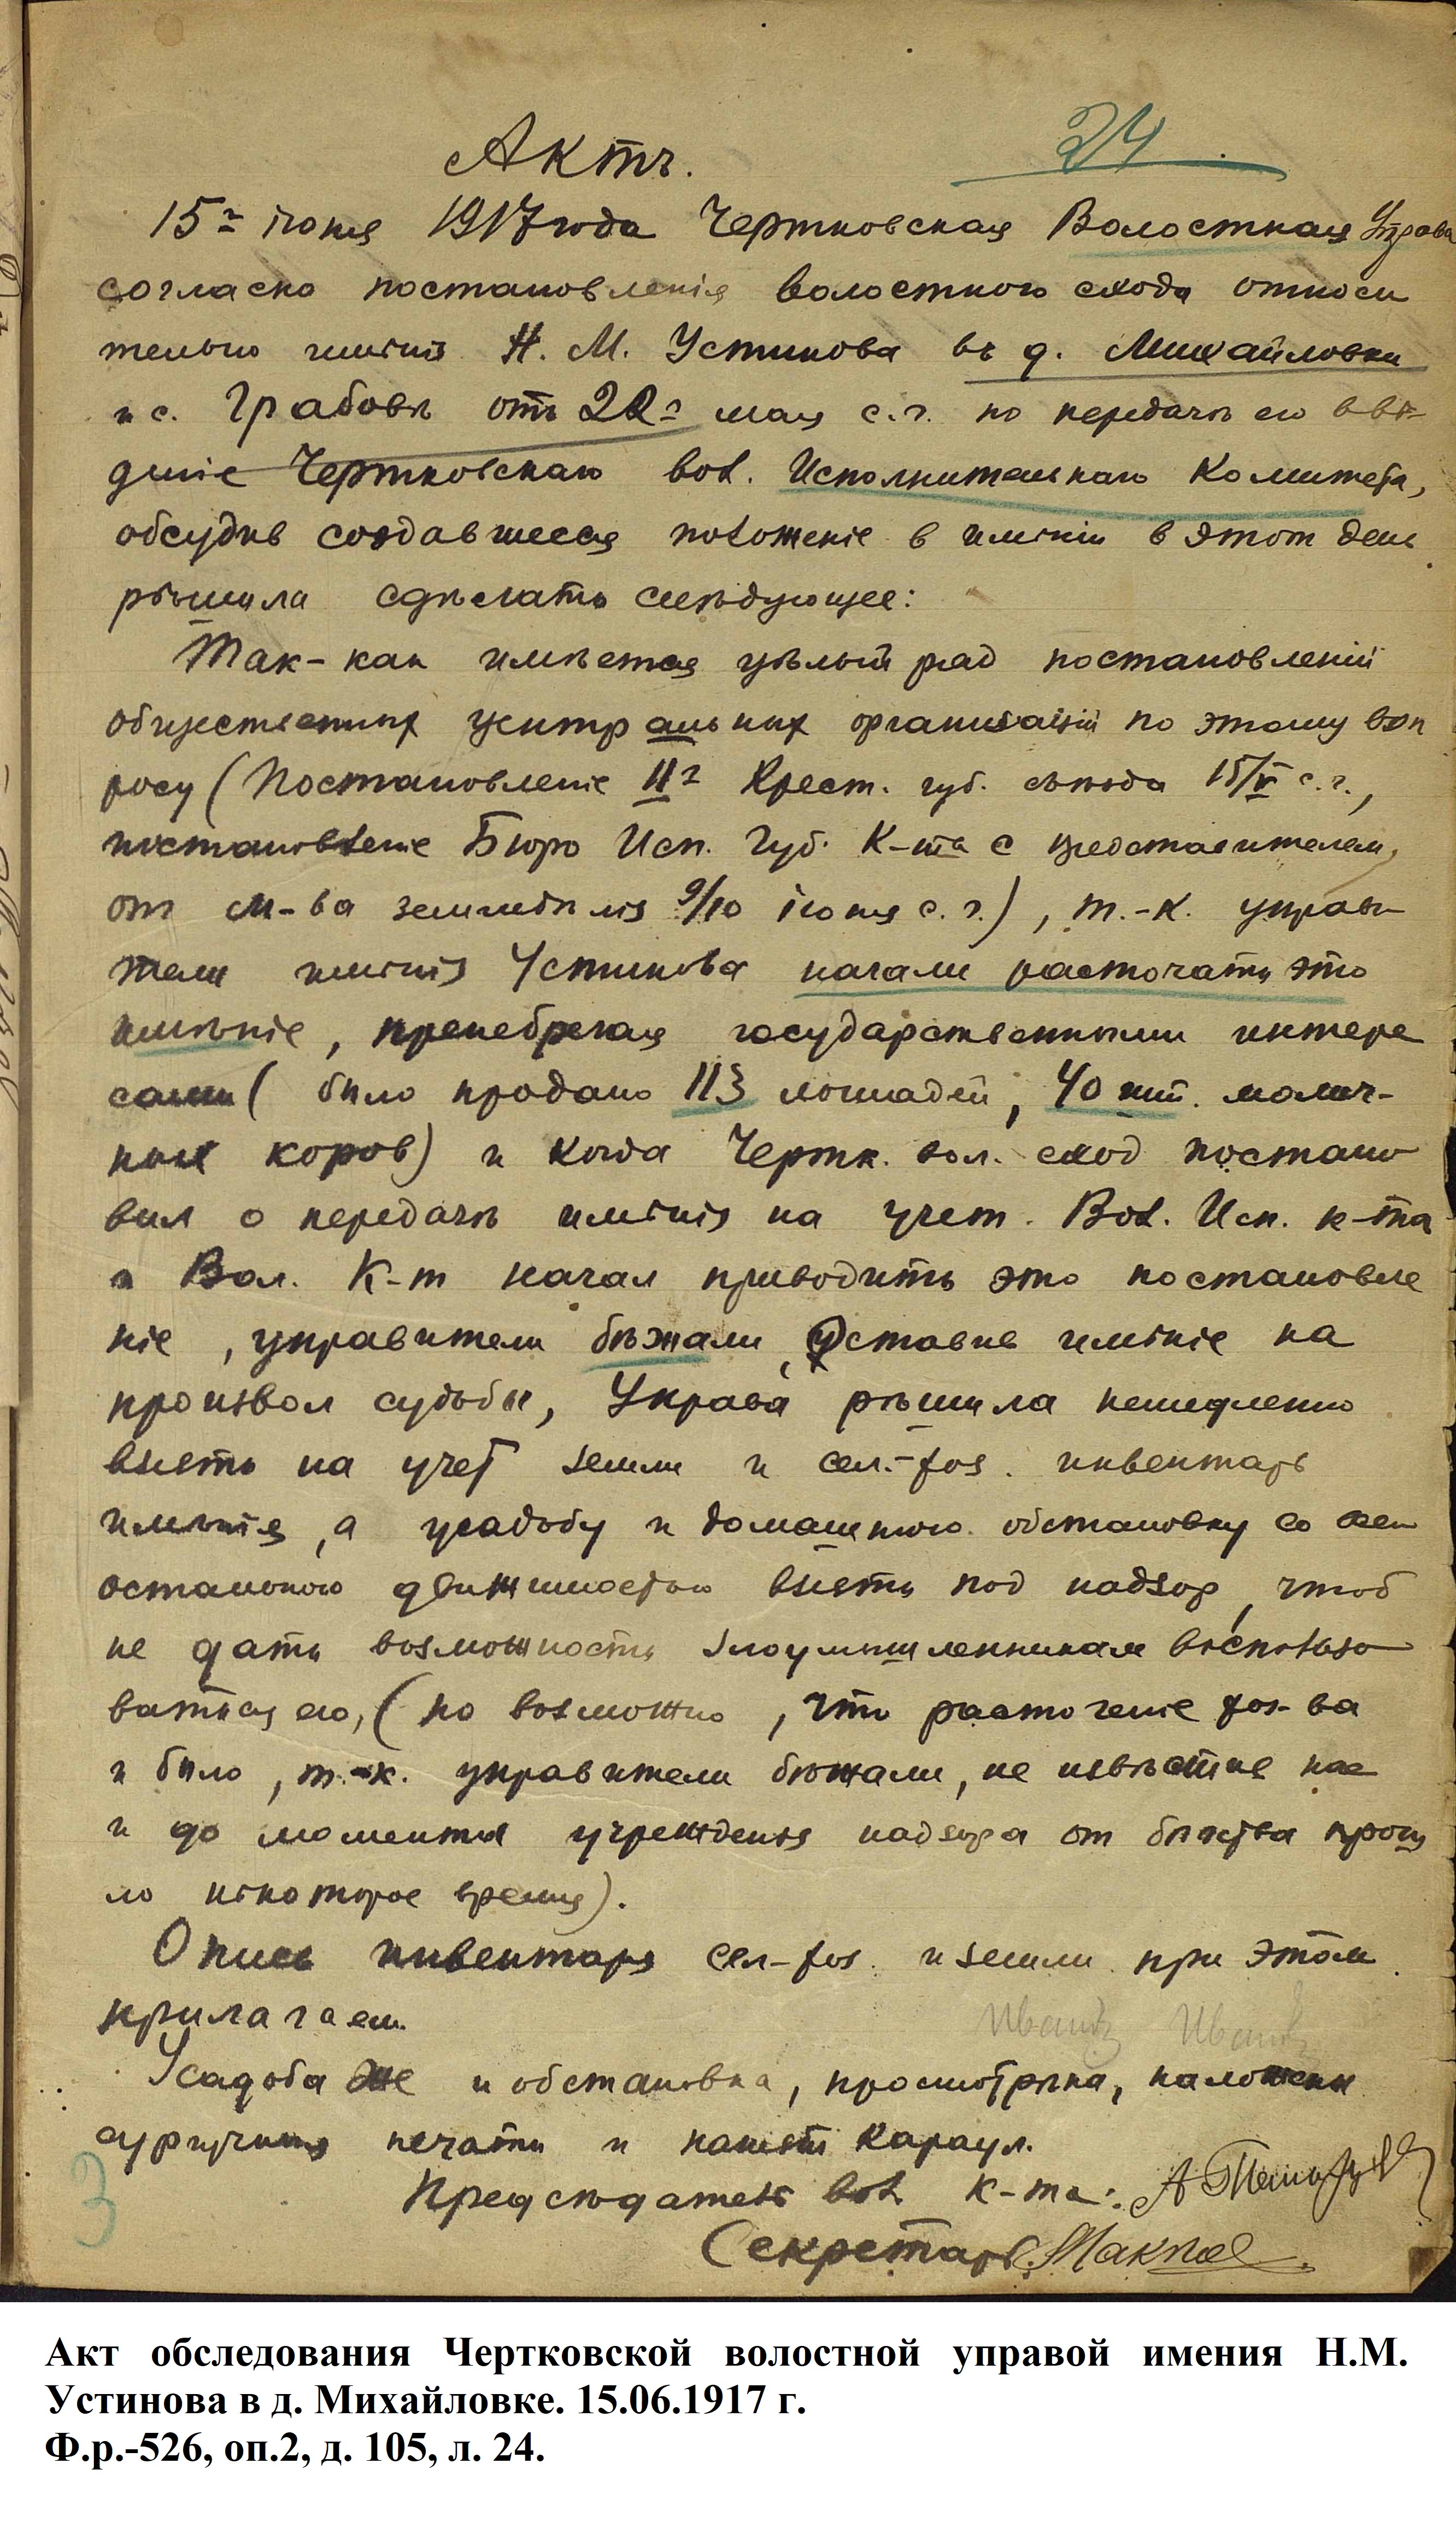 24
Актъ.
15го іюня 1917 года Чертковская Волостная Управа
согласно постановленія волостного схода относи
тельно имѣнія Н. М. Устинова въ д. Михайловки
и с. Грабовѣ отъ 22го мая с.г. по передачѣ его в вѣ-
дѣніе Чертковскаго вол. Исполнительнаго Комитета,
обсудив создавшееся положеніе в имѣніи в этот день
рѣшила сдѣлать слѣдующее:
Так-как имѣется цѣлый ряд постановленій
общественных центральных организацій по этому воп
росу (Постановленіе IIго Крест. губ. съѣзда 15/V с.г.,
постановленіе Бюро Исп. Губ. К-та с представителем
от м-ва земледѣлія 9/10 іюня с.г.), т.-к. управи
тели имѣнія Устинова начали расточать это
имѣніе, пренебрегая государственными интере
сами (было продано 113 лошадей, 40 шт. молоч-
ных коров) и когда Чертк. вол. сход постано
вил о передачѣ имѣнія на учет. Вол. Исп. к-та
и Вол. К-т начал приводить это постановле
ніе, управители бѣжали, оставив имѣніе на
произвол судьбы, Управа рѣшила немедленно
взять на учет земли и сел.-хоз. инвентарь
имѣнія, а усадьбу и домашнюю обстановку со всей
остальною движимостью взять под надзор, чтоб
не дать возможность злоумышленникам воспользо
ваться ею, (но возможно, что расточеніе хоз-ва
и было, т.-к. управители бѣжали, не извѣстив нас
и до момента учрежденія надзора от бѣгства прош
ло нѣкоторое время).
Опись инвентаря сел-хоз. и земли при этом
прилагаем.
Иванъ Иванъ
Усадьба же и обстановка, просмотрѣна, наложены
сургучныя печати и нанят караул.
Предсѣдатель вол. к-та:
Секретарь
3
Акт обследования Чертковской волостной управой имения Н.М.
Устинова в д. Михайловке. 15.06.1917 г.
Ф.р.-526, оп.2, д. 105, л. 24.